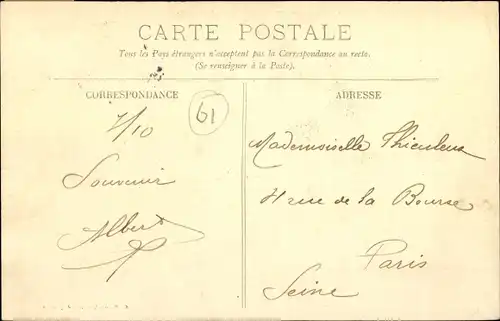 CARTE POSTALE
Tous les Pays étrangers n'acceptent pas la Correspondance au recto.
(Se renseigner à la Poste).
CORRESPONDANCE
ADRESSE
7/10
61
Souvenir
Albert
Mademoiselle
rue de la Bourse
Paris
Seine